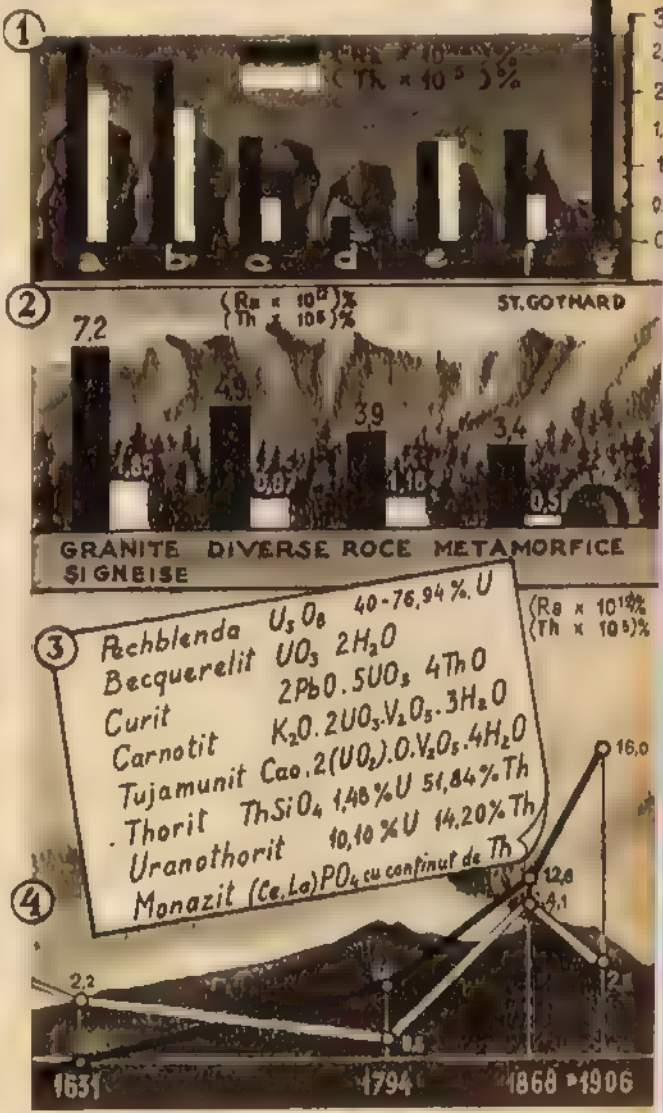 1
(Th × 10⁵)%
a b c d e f
2
(Ra × 10¹²)%
(Th × 10⁵)%
ST. GOTHARD
7,2 4,9 3,9 3,4
1,85 0,87 1,18 0,5
GRANITE DIVERSE ROCE METAMORFICE
ȘI GNEISE
3
Pechblenda U₃O₈ 40-76,94%.U
Becquerelit UO₃ 2H₂O
Curit 2PbO.5UO₃ 4ThO
Carnotit K₂O.2UO₃.V₂O₅.3H₂O
Tujamunit Cao.2(UO₂).O.V₂O₅.4H₂O
Thorit ThSiO₄ 1,48%U 51,84%Th
Uranothorit 10,10%U 14,20%Th
Monazit (Ce,La)PO₄ cu conținut de Th
(Ra × 10¹²%
(Th × 10⁵)%
4
16,0
12,6
4,1
2,2
1631 1794 1868 1906